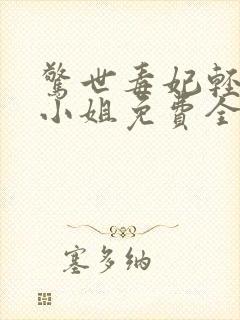 驚世毒妃輕
小姐免費全
塞多納